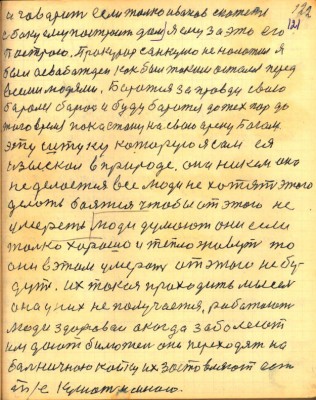 122
121
и говорит если только иванов скажет
я баку ему построит дом я ему за это его
построю. Прокурор санкцию не наложил я
был освобожден как был таким остался перед
всеми людями. Боротся за правду свою
боролся борюсь и буду боротся до тех пор до
того время пока стану на свою арену Богом
эту штуку которую я сам ея
изыскал в природе. она никем она
не делается все люди не хотят этого
делать боятся чтобы от этого не
умереть люди думают они если
только хорошо и тепло живут то
они в этом умерать от этого не бу-
дут. их такая приходить мысль
она у них не получается, работают
люди здорово а когда заболеют
им дают билютень они переходят на
балничною койку их заставляют есть